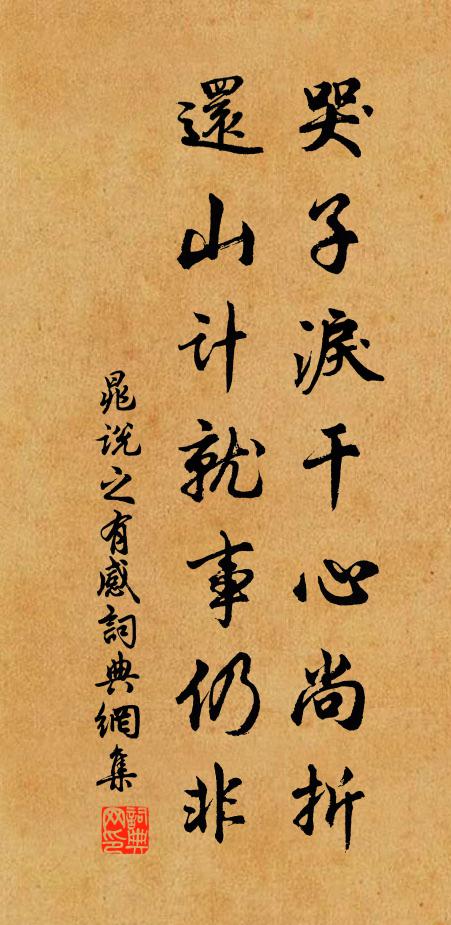 哭子淚干心尚折
還山计就事仍非
晁説之有感詞典網集
詞典网印